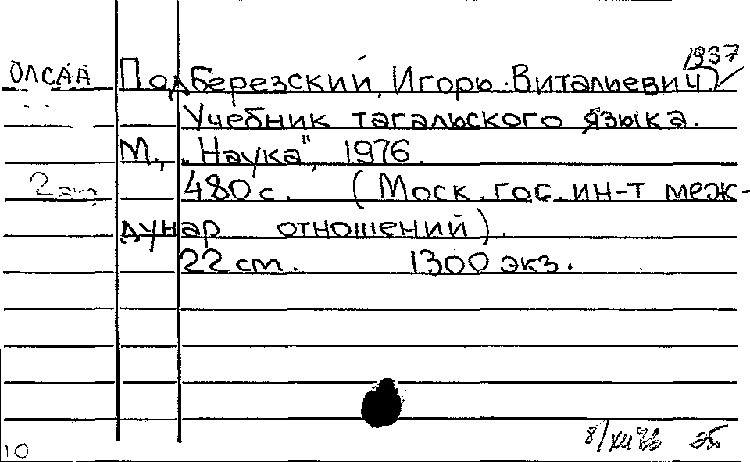 1937
ОЛСАА Подберезский, Игорь Виталиевич
Учебник тагальского языка.
М., „Наука", 1976.
2 экз 480 с. (Моск. гос. ин-т меж-
дунар отношений).
22 cm. 1300 экз.
10